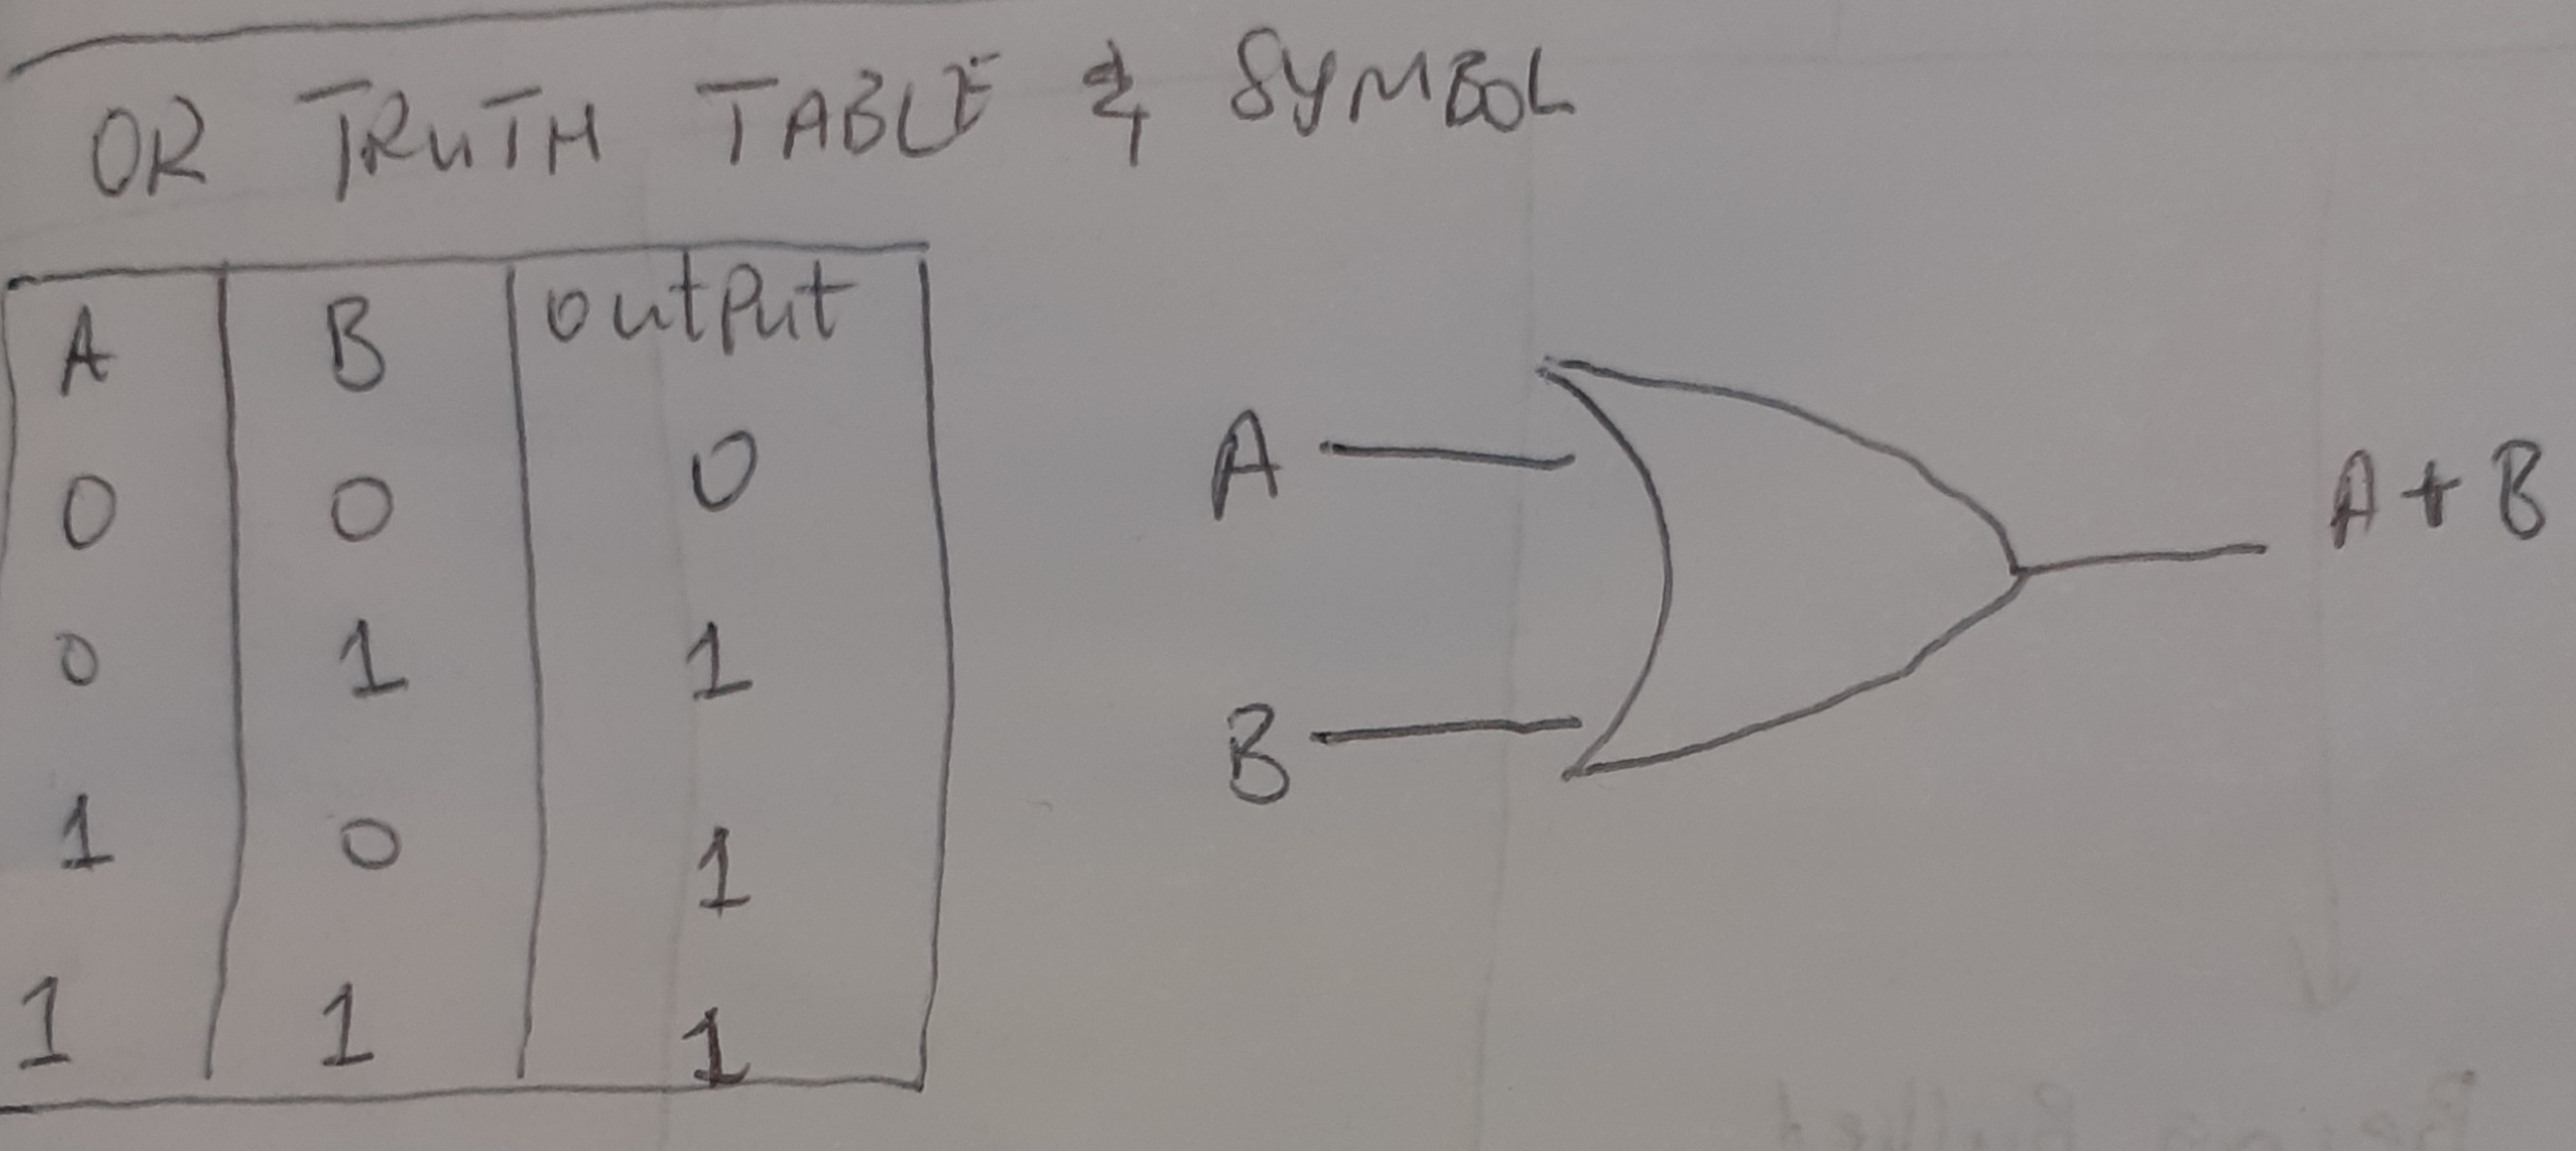 OR TRUTH TABLE & SYMBOL
A B output
0 0 0
0 1 1
1 0 1
1 1 1
A
B
A + B